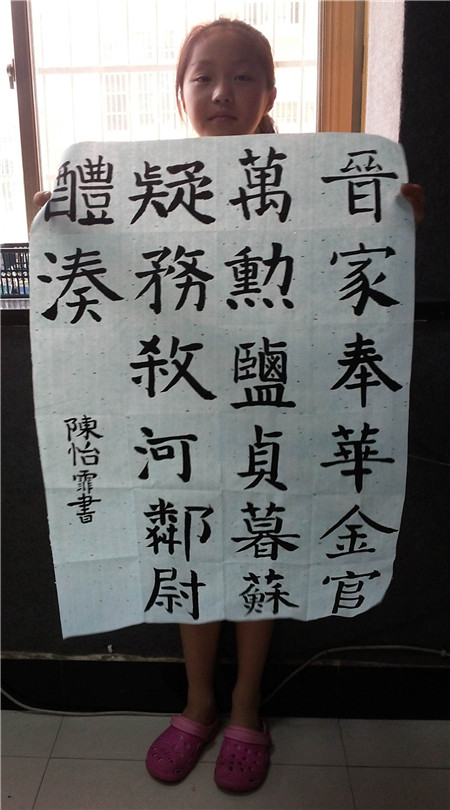 晉家奉華金官
萬勲鹽貞暮蘇
疑務敘河鄰尉
醴湊
陳怡霏書